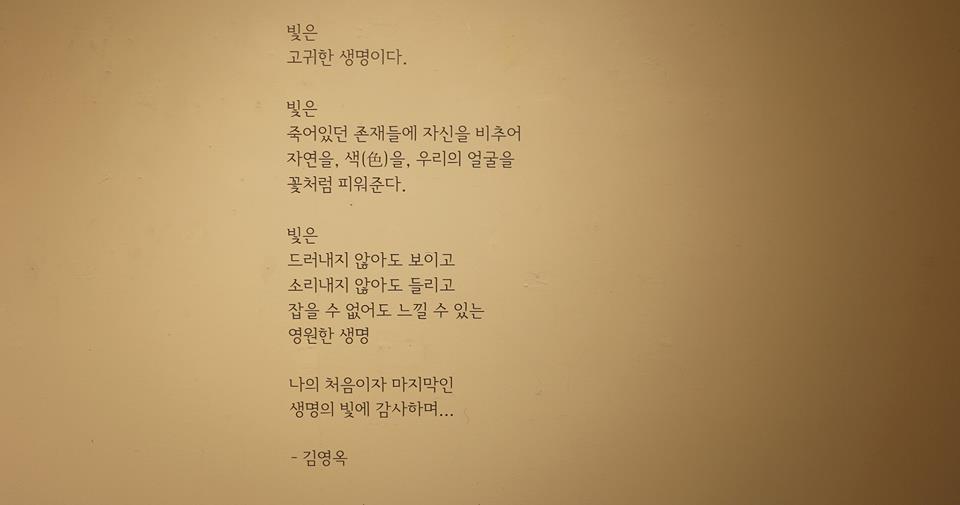 빛은
고귀한 생명이다.
빛은
죽어있던 존재들에 자신을 비추어
자연을, 색(色)을, 우리의 얼굴을
꽃처럼 피워준다.
빛은
드러내지 않아도 보이고
소리내지 않아도 들리고
잡을 수 없어도 느낄 수 있는
영원한 생명
나의 처음이자 마지막인
생명의 빛에 감사하며...
- 김영옥